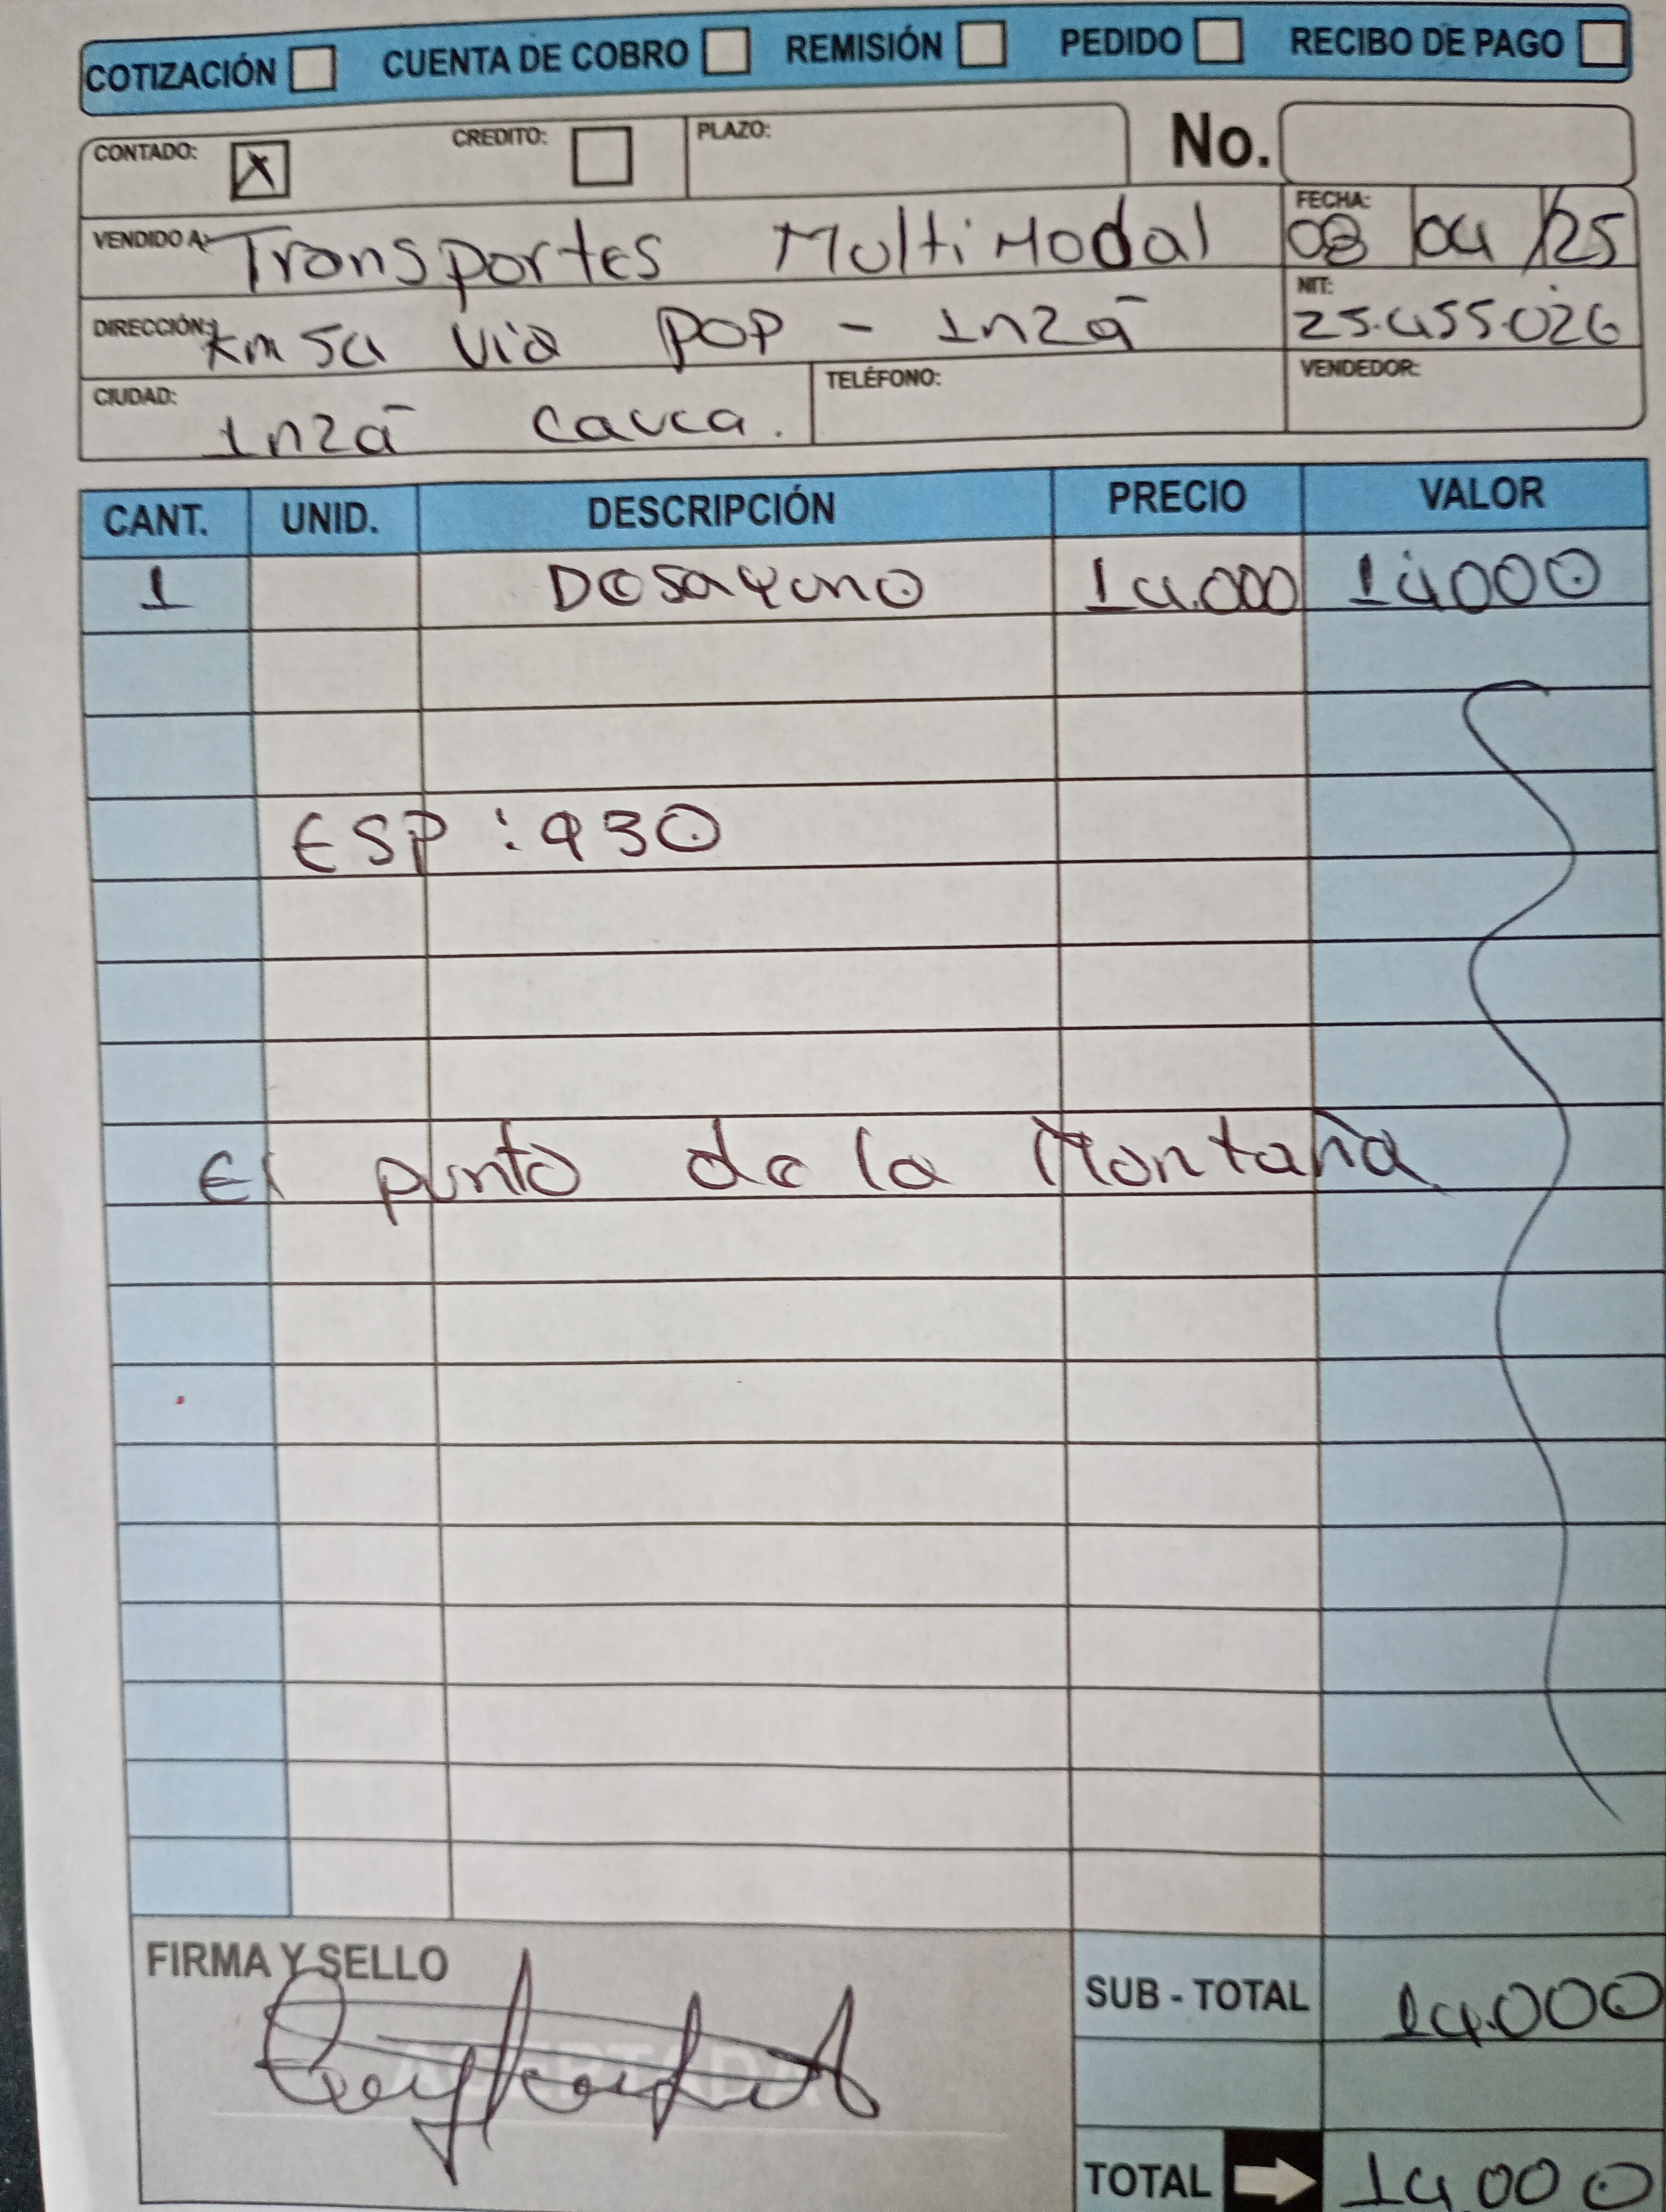 COTIZACIÓN CUENTA DE COBRO REMISIÓN PEDIDO RECIBO DE PAGO
CONTADO: X CREDITO: PLAZO: No.
VENDIDO A: Transportes MultiModal FECHA: 08 04 /25
DIRECCIÓN: km 54 via POP - Inzá NIT: 25.455.026
CIUDAD: Inzá Cauca. TELÉFONO: VENDEDOR:
CANT. UNID. DESCRIPCIÓN PRECIO VALOR
1 Desayuno 14.000 14.000
ESP: 930
El punto de la Montaña
FIRMA Y SELLO
ACEPTADA
SUB - TOTAL 14.000
TOTAL 14.000